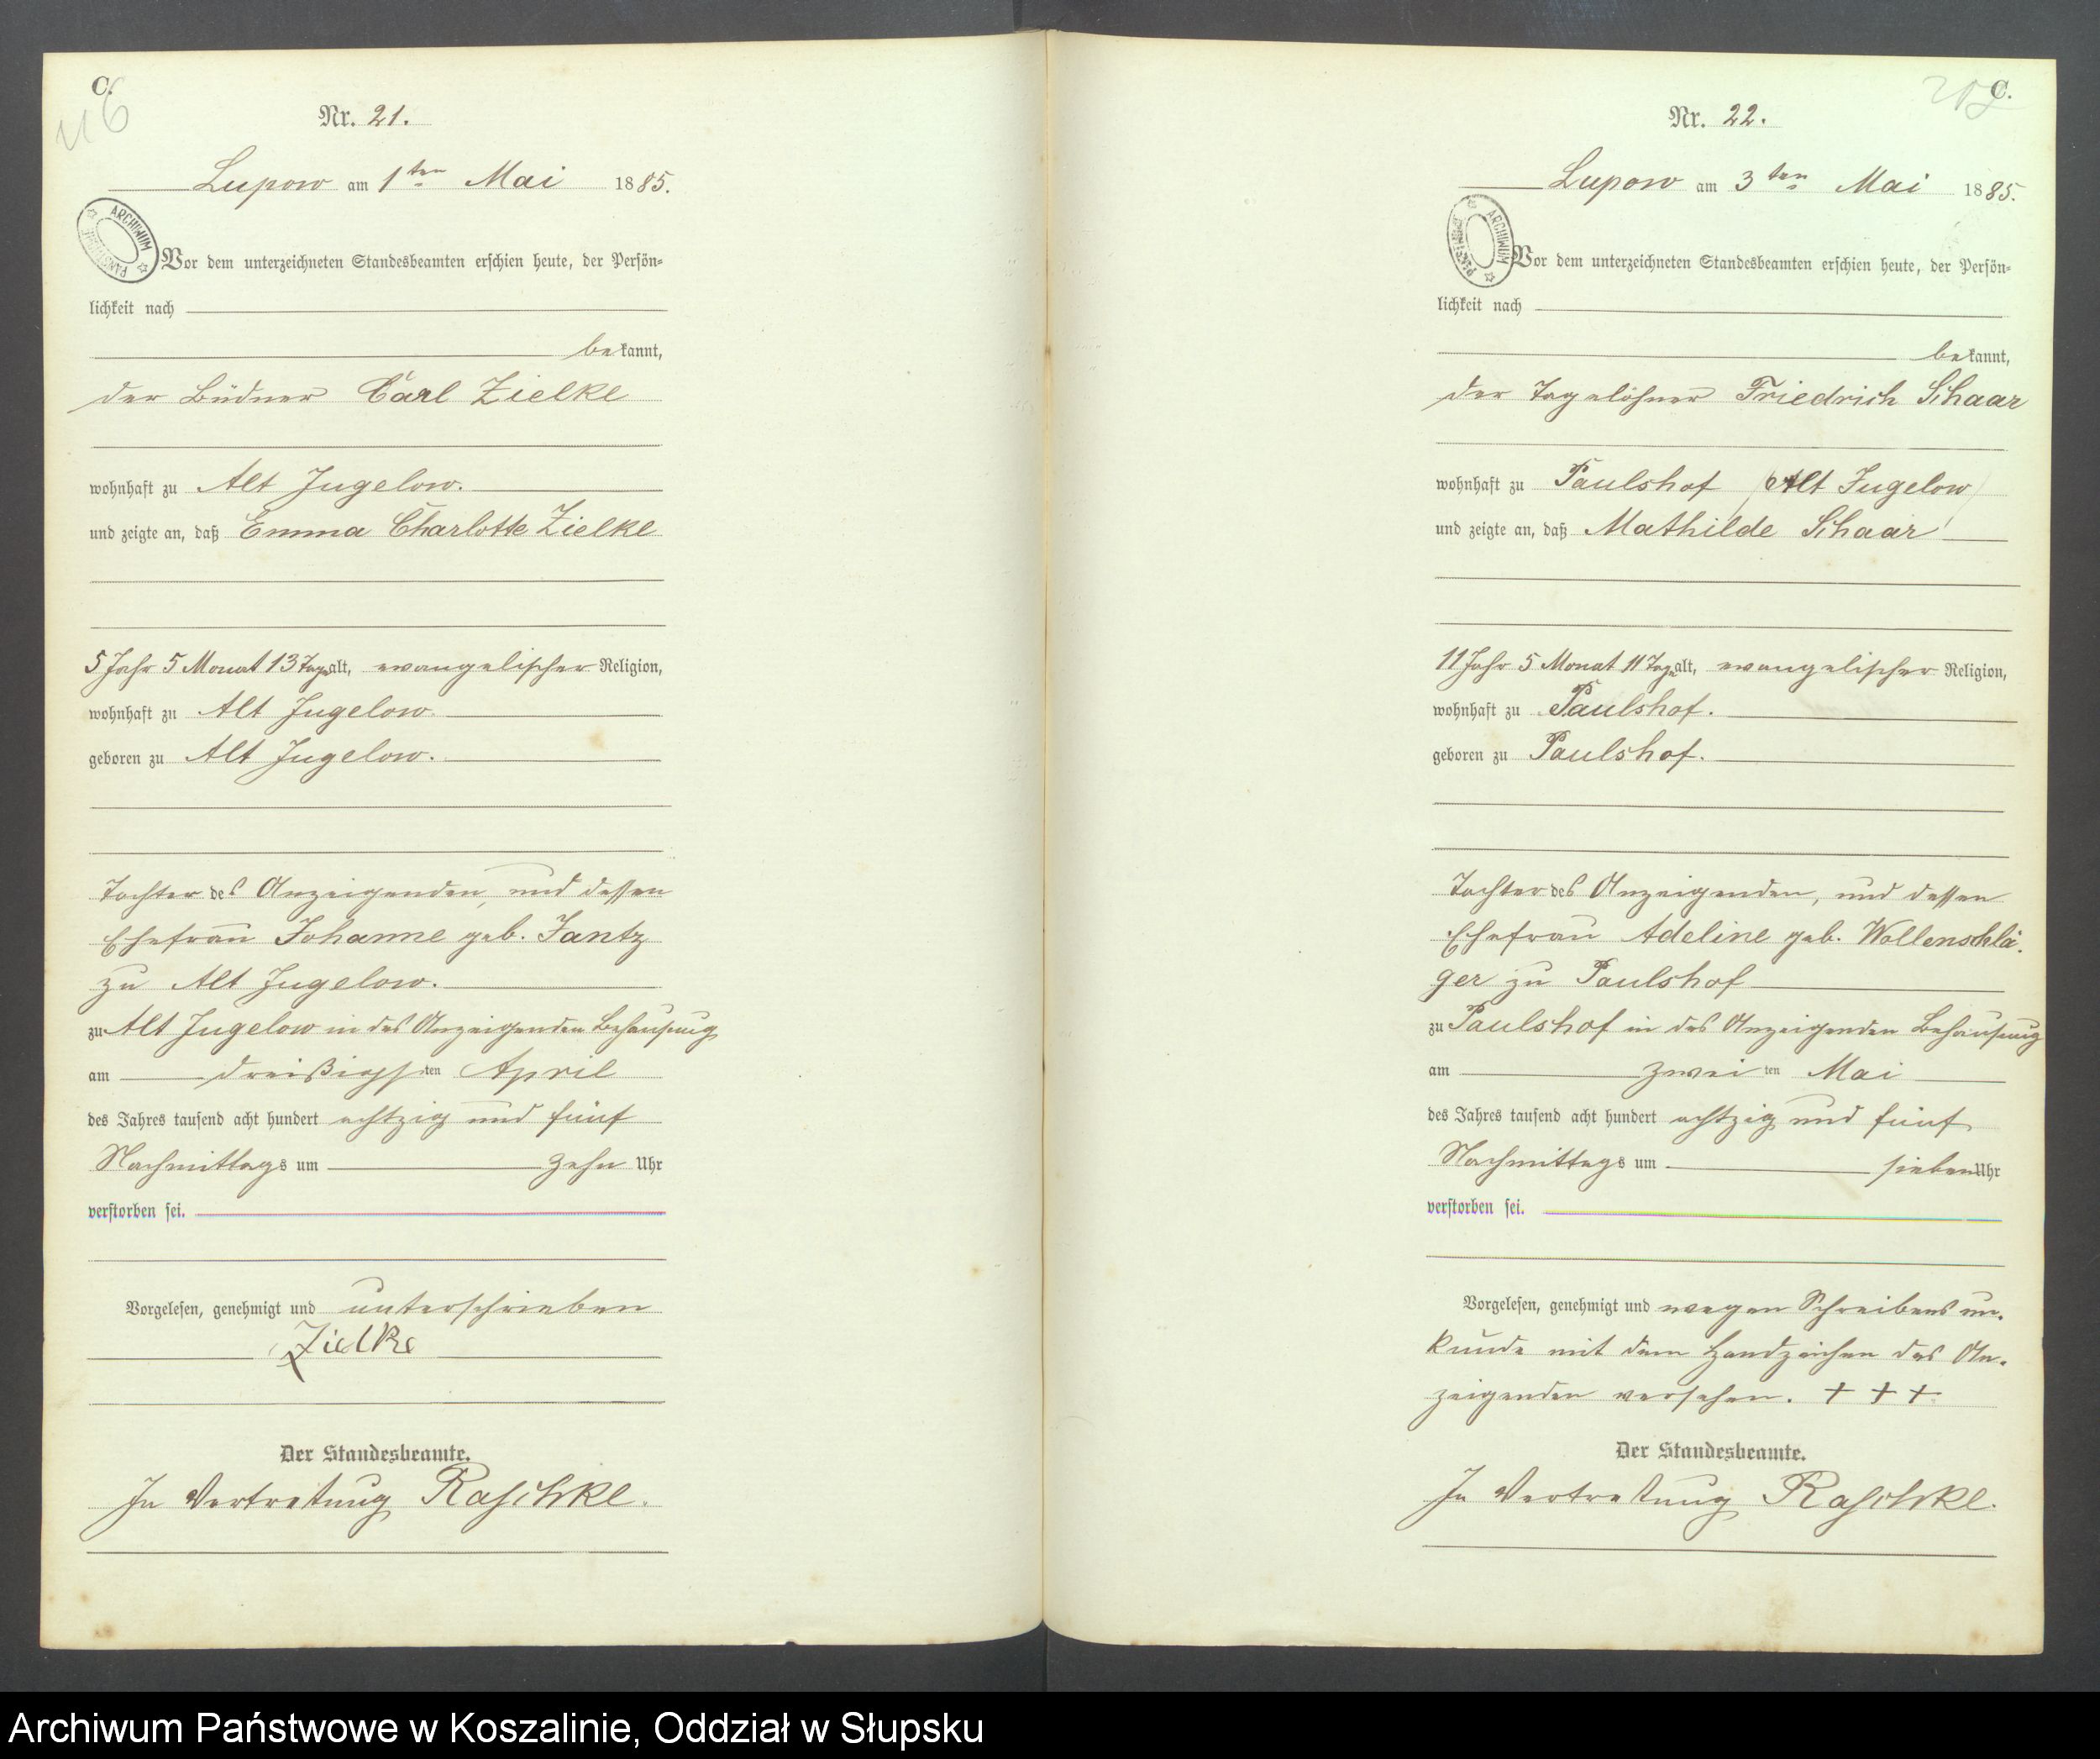 C.
116
Nr. 21.
Lupow am 1ten Mai 1885.
ARCHIWUM PAŃSTWOWE
Vor dem unterzeichneten Standesbeamten erschien heute, der Persön-
lichkeit nach
bekannt,
der Büdner Carl Zielke
wohnhaft zu Alt Jugelow.
und zeigte an, daß Emma Charlotte Zielke
5 Jahr 5 Monat 13 Tage alt, evangelischer Religion,
wohnhaft zu Alt Jugelow.
geboren zu Alt Jugelow.
Tochter des Anzeigenden, und dessen
Ehefrau Johanne geb. Jantz
zu Alt Jugelow.
zu Alt Jugelow in des Anzeigenden Behausung
am dreißigsten April
des Jahres tausend acht hundert achtzig und fünf
Nachmittags um zehn Uhr
verstorben sei.
Vorgelesen, genehmigt und unterschrieben
Zielke
Der Standesbeamte.
In Vertretung Raschke.
C.
Nr. 22.
Lupow am 3ten Mai 1885.
ARCHIWUM PAŃSTWOWE
Vor dem unterzeichneten Standesbeamten erschien heute, der Persön-
lichkeit nach
bekannt,
der Tagelöhner Friedrich Schaar
wohnhaft zu Paulshof (Alt Jugelow)
und zeigte an, daß Mathilde Schaar
11 Jahr 5 Monat 11 Tage alt, evangelischer Religion,
wohnhaft zu Paulshof.
geboren zu Paulshof.
Tochter des Anzeigenden, und dessen
Ehefrau Adeline geb. Wollenschlä-
ger zu Paulshof
zu Paulshof in des Anzeigenden Behausung
am zweiten Mai
des Jahres tausend acht hundert achtzig und fünf
Nachmittags um sieben Uhr
verstorben sei.
Vorgelesen, genehmigt und wegen Schreibens un-
kunde mit dem Handzeichen des An-
zeigenden versehen. + + +
Der Standesbeamte.
In Vertretung Raschke.
Archiwum Państwowe w Koszalinie, Oddział w Słupsku